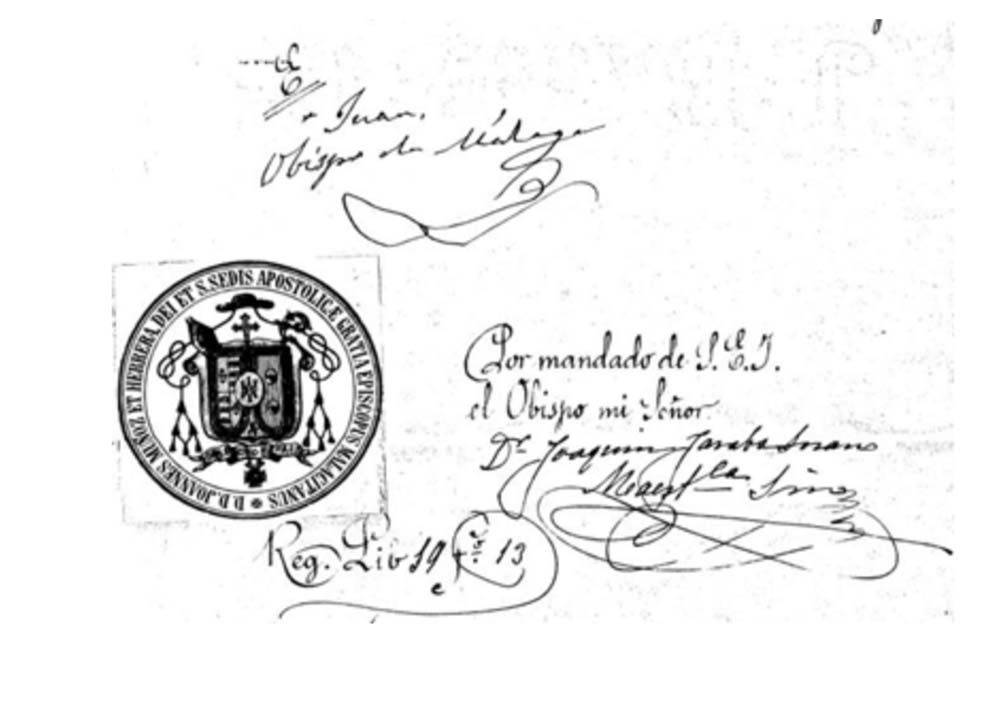 + Juan,
Obispo de Málaga
D.D. JOANNES MUÑOZ ET HERRERA, DEI ET S. SEDIS APOSTOLICÆ GRATIA EPISCOPUS MALACITANUS
Por mandado de S. E. I.
el Obispo mi Señor
Dr. Joaquin Jaraba
Reg. Lib 19 fº 13